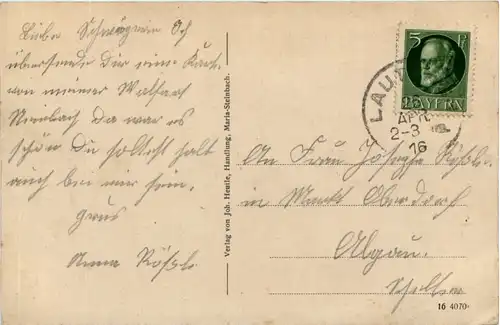 Liebe Schwägerin Ich
übersende Dir eine Karte
von meiner Walfart
da war es
schön Du solltest halt
auch bei mir sein.
Gruss
Anna Rößle
Verlag von Joh. Heutle, Handlung, Maria-Steinbach.
5 Pf
BAYERN
LAUT
2-3
16
An Frau Josepha Rößle
in Markt Oberdorf
Algäu
16 4070